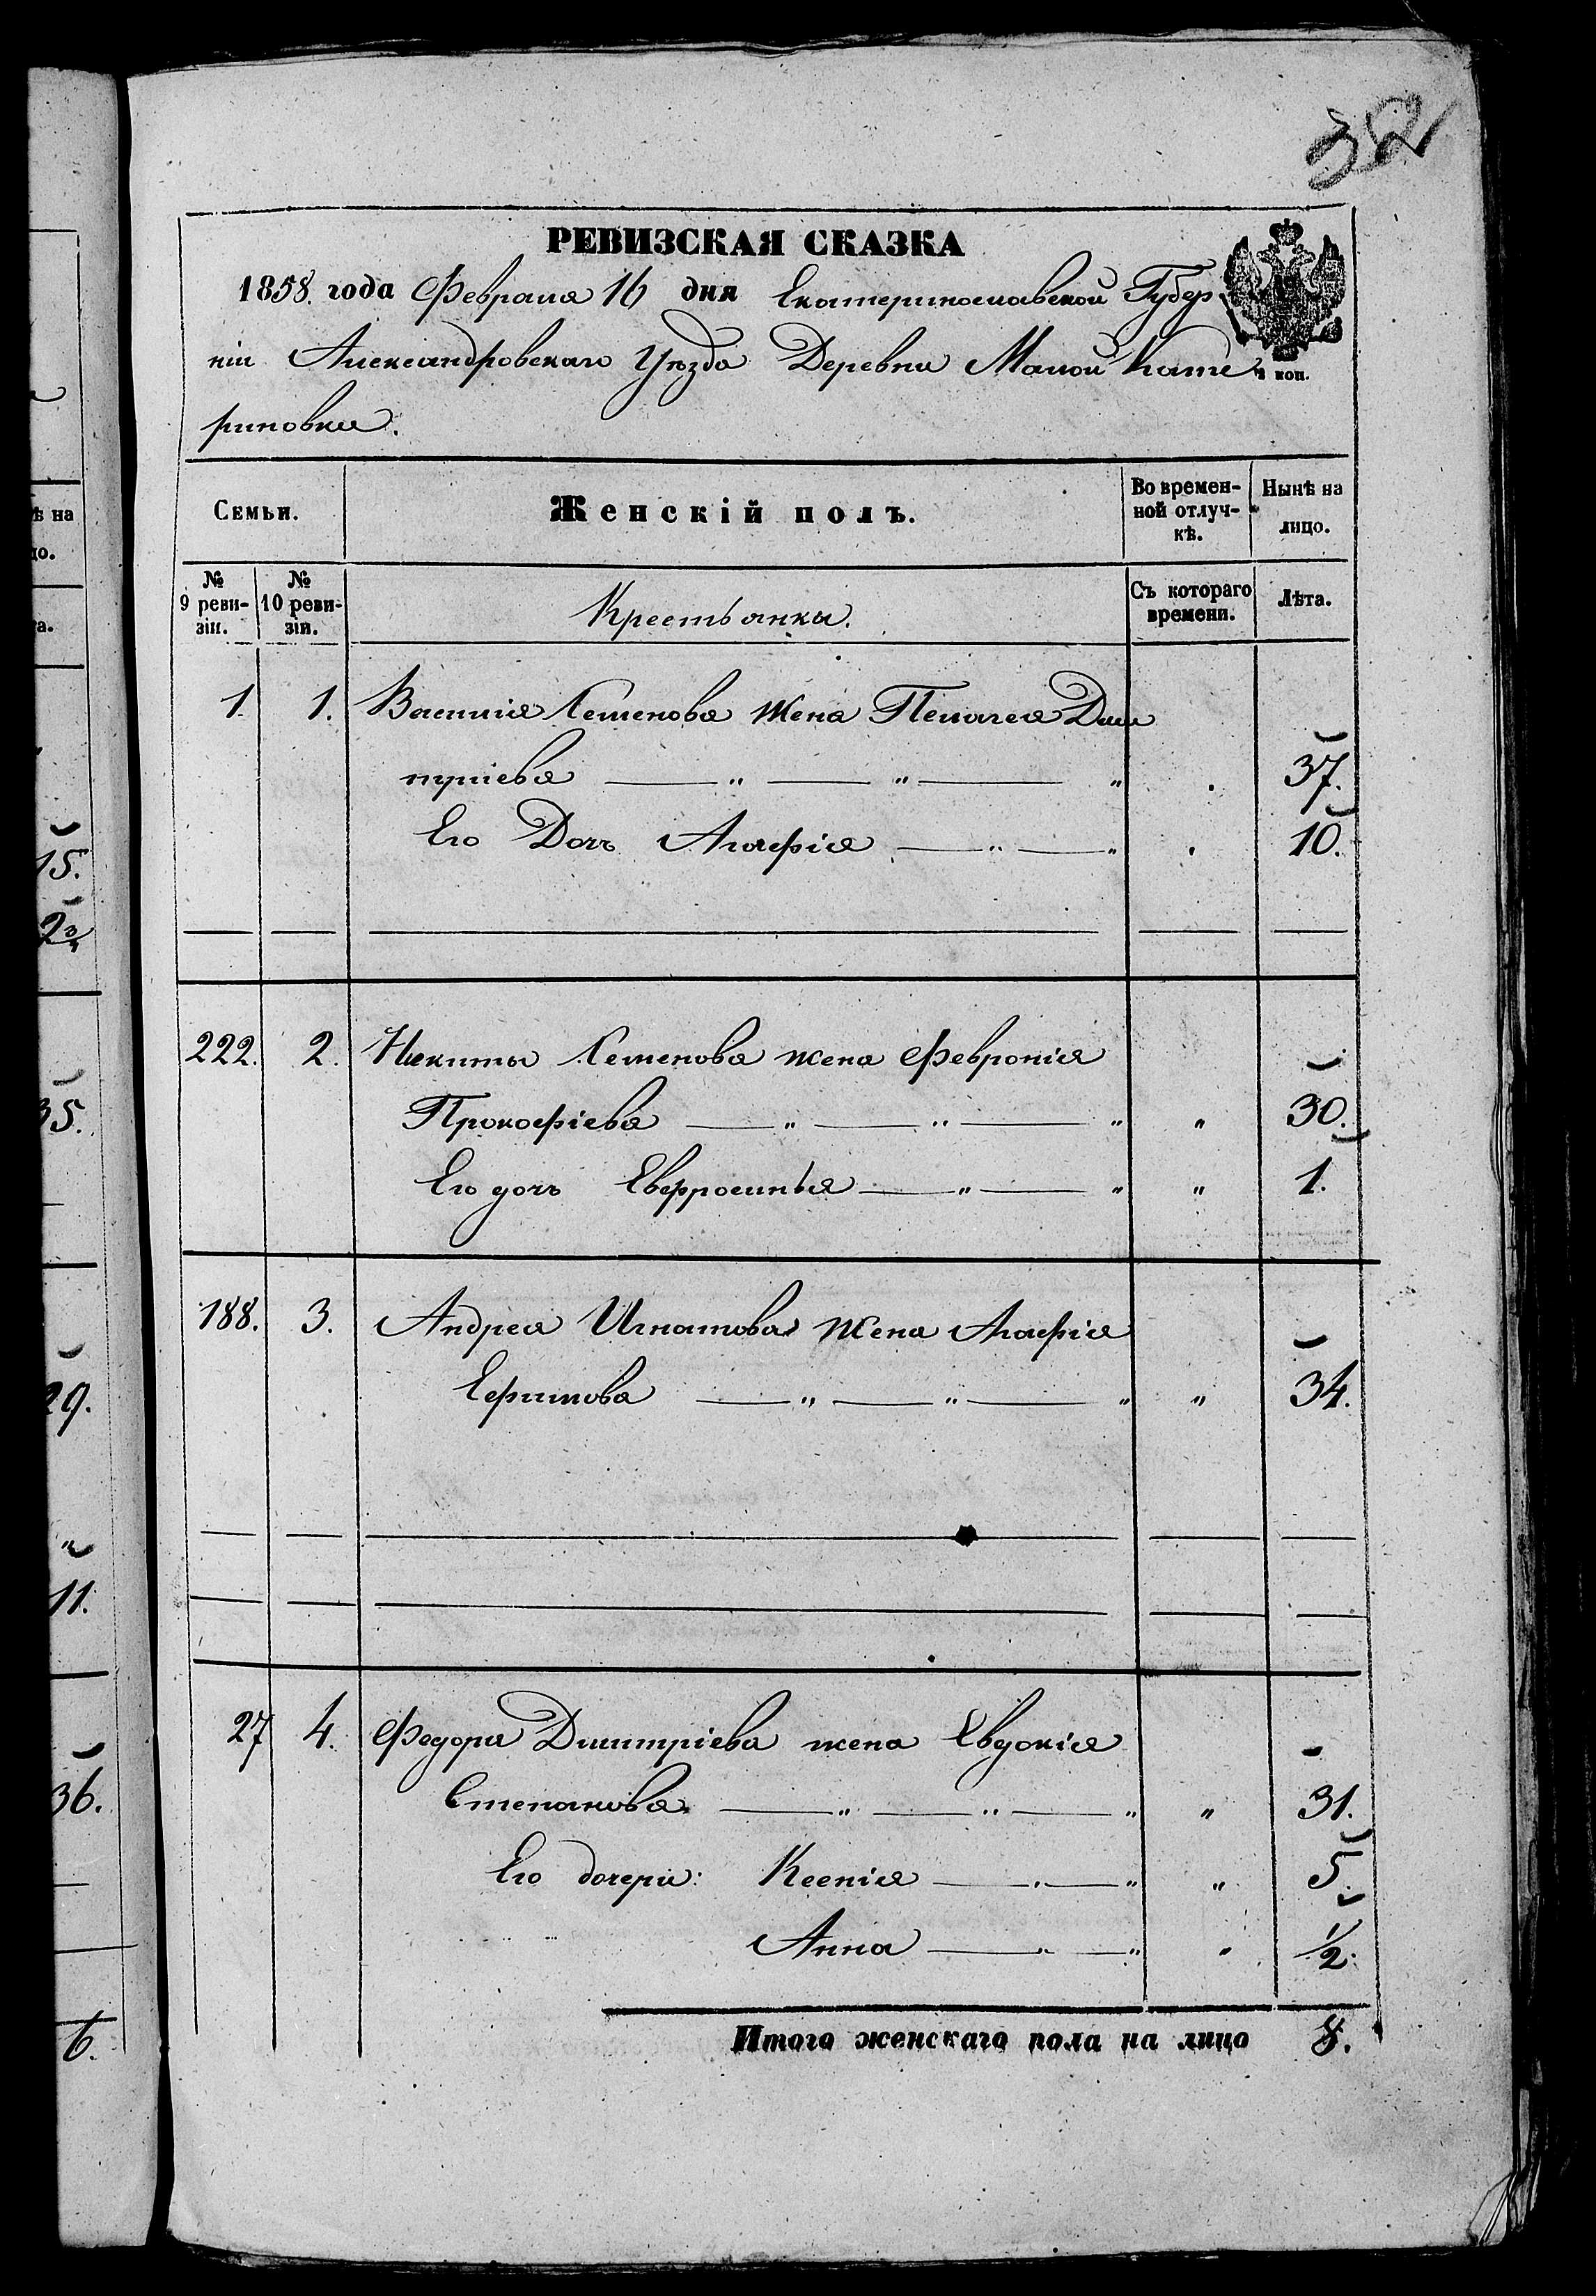 32
РЕВИЗСКАЯ СКАЗКА
1858. года Февраля 16 дня Екатеринославской Губер
ніи Александровскаго Уѣзда Деревни Малой Кате
1 коп.
риновки.
Семьи. Женскій полъ. Во времен- Нынѣ на
ной отлуч- лицо.
кѣ.
№ № Крестьянки. Съ котораго Лѣта.
9 реви- 10 реви- времени.
зіи. зіи.
1 1. Василія Семенова Жена Пелагея Дми
тріева — „ — „ — „ 37.
Его Дочь Агафія — „ — „ 10.
222. 2. Никиты Семенова жена Февронія
Прокофіева — „ — „ — „ „ 30.
Его дочь Евфросинья — „ — „ „ 1.
188. 3. Андрея Игнатова Жена Агафія
Ефимова — „ — „ — „ „ 34.
27 4. Федора Дмитріева жена Евдокія
Степанова — „ — „ — „ „ 31.
Его дочери: Ксенія — „ — „ „ 5.
Анна — „ — „ „ 1/2.
Итого женскаго пола на лицо 8.
ѣ на
цо.
та.
15.
2¾
35.
29.
„
11.
36.
6.